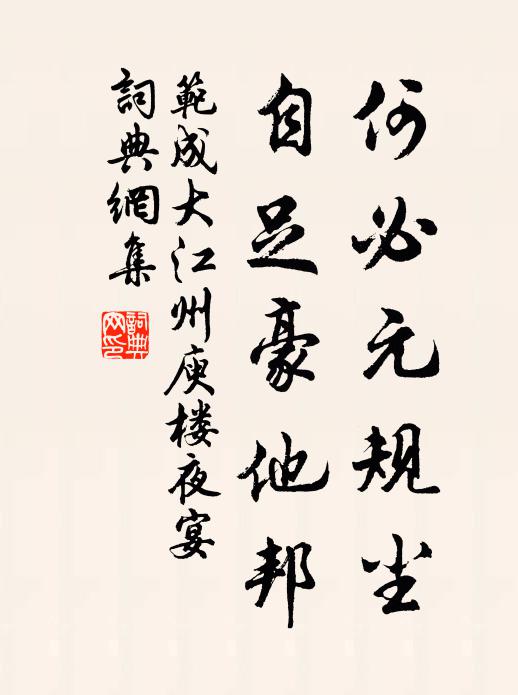 何必元规尘
自足豪他邦
範成大江州庾楼夜宴
詞典網集
詞典
网印